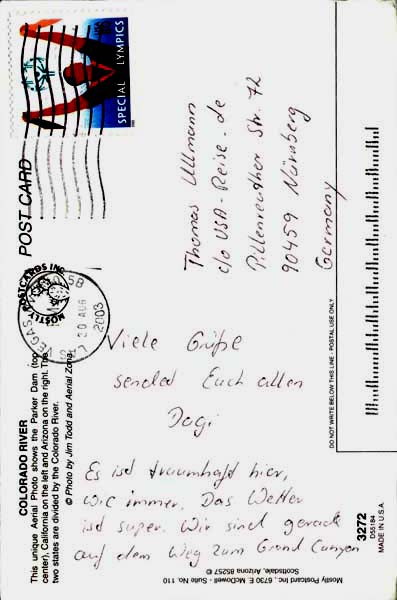 SPECIAL OLYMPICS
POST CARD
MOSTLY POSTCARDS INC
VEGAS
20 AUG
2003
COLORADO RIVER
This unique Aerial Photo shows the Parker Dam (top
center), California on the left and Arizona on the right. The
two states are divided by the Colorado River.
© Photo by Jim Todd and Aerial Zona
Thomas Ullmann
c/o USA-Reise.de
Pillenreuther Str. 72
90459 Nürnberg
Germany
Viele Grüße
sendet Euch allen
Dagi
Es ist traumhaft hier,
wie immer. Das Wetter
ist super. Wir sind gerade
auf dem Weg zum Grand Canyon
DO NOT WRITE BELOW THIS LINE - POSTAL USE ONLY
3272
D55184
MADE IN U.S.A.
Mostly Postcard Inc., 6730 E. McDowell - Suite No. 110
Scottsdale, Arizona 85257 ©